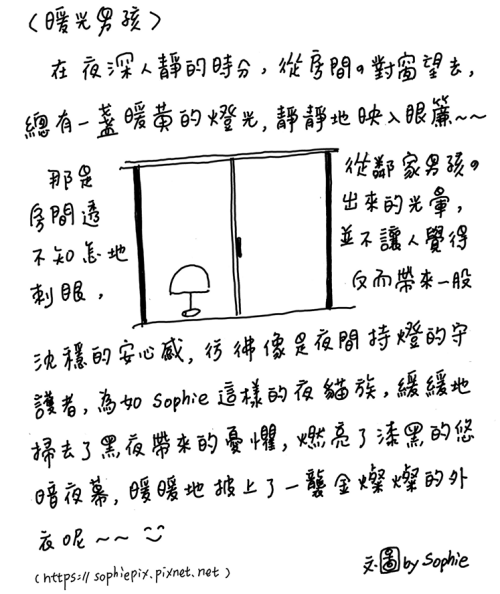 〈暖光男孩〉
在夜深人靜的時分，從房間の對窗望去，
總有一盞暖黃的燈光，靜靜地映入眼簾~~
那是 從鄰家男孩の
房間透 出來的光暈，
不知怎地 並不讓人覺得
刺眼， 反而帶來一股
沈穩的安心感，彷彿像是夜間持燈的守
護者，為如Sophie這樣的夜貓族，緩緩地
掃去了黑夜帶來的憂懼，燃亮了漆黑的悠
暗夜幕，暖暖地披上了一襲金燦燦的外
衣呢~~
(https://sophiepix.pixnet.net)
文.圖by Sophie